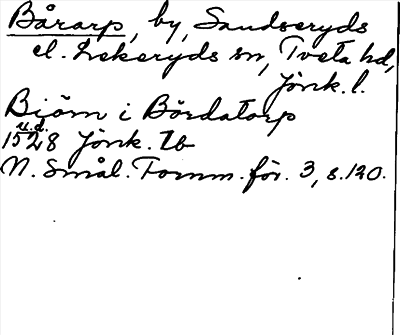 Bårarp, by, Sandseryds
el. Lekeryds sn, Tveta hd,
Jönk. l.
Biörn i Bördatorp
u.d.
1528 Jönk. Tb
N. Smål. Fornm. för. 3, s. 120.